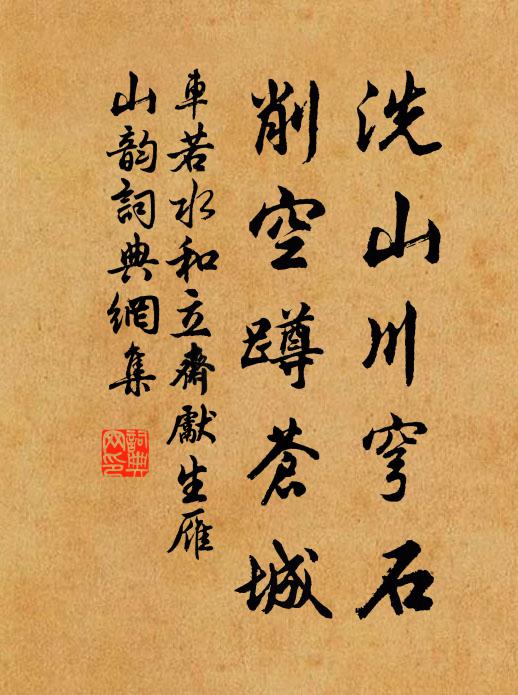 洗山川穹石
削空蹲蒼城
車若水和立齋獻生雁
山韵詞典網集
詞典
网印